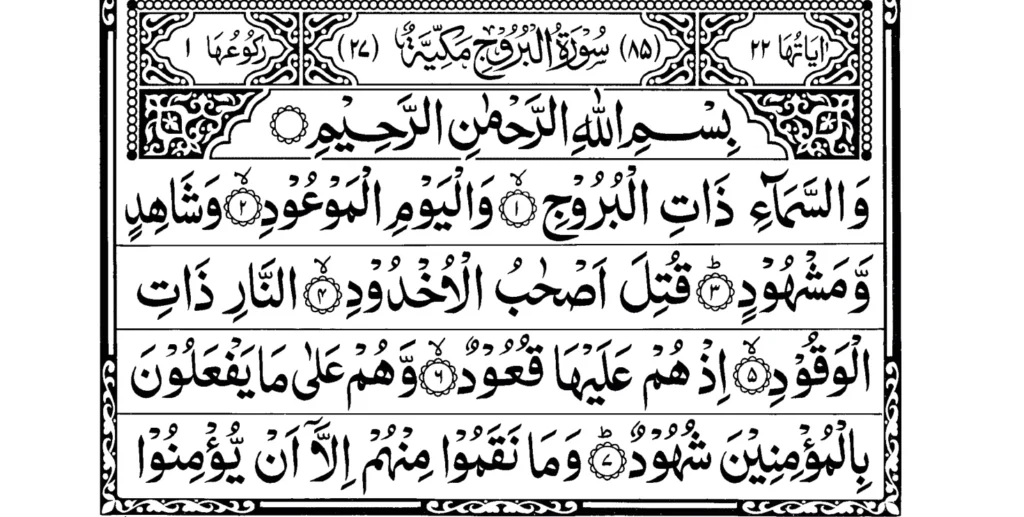 اٰيَاتُهَا ٢٢ (٨٥) سُوْرَةُ الْبُرُوْجِ مَكِّيَّةٌ (٢٧) رُكُوْعُهَا ١
بِسْمِ اللّٰهِ الرَّحْمٰنِ الرَّحِيْمِ
وَالسَّمَآءِ ذَاتِ الْبُرُوْجِ ۙ‏١ وَالْيَوْمِ الْمَوْعُوْدِ ۙ‏٢ وَشَاهِدٍ
وَّمَشْهُوْدٍ ؕ‏٣ قُتِلَ اَصْحٰبُ الْاُخْدُوْدِ ۙ‏٤ النَّارِ ذَاتِ
الْوَقُوْدِ ۙ‏٥ اِذْ هُمْ عَلَيْهَا قُعُوْدٌ ۙ‏٦ وَّهُمْ عَلٰى مَا يَفْعَلُوْنَ
بِالْمُؤْمِنِيْنَ شُهُوْدٌ ؕ‏٧ وَمَا نَقَمُوْا مِنْهُمْ اِلَّاۤ اَنْ يُّؤْمِنُوْا